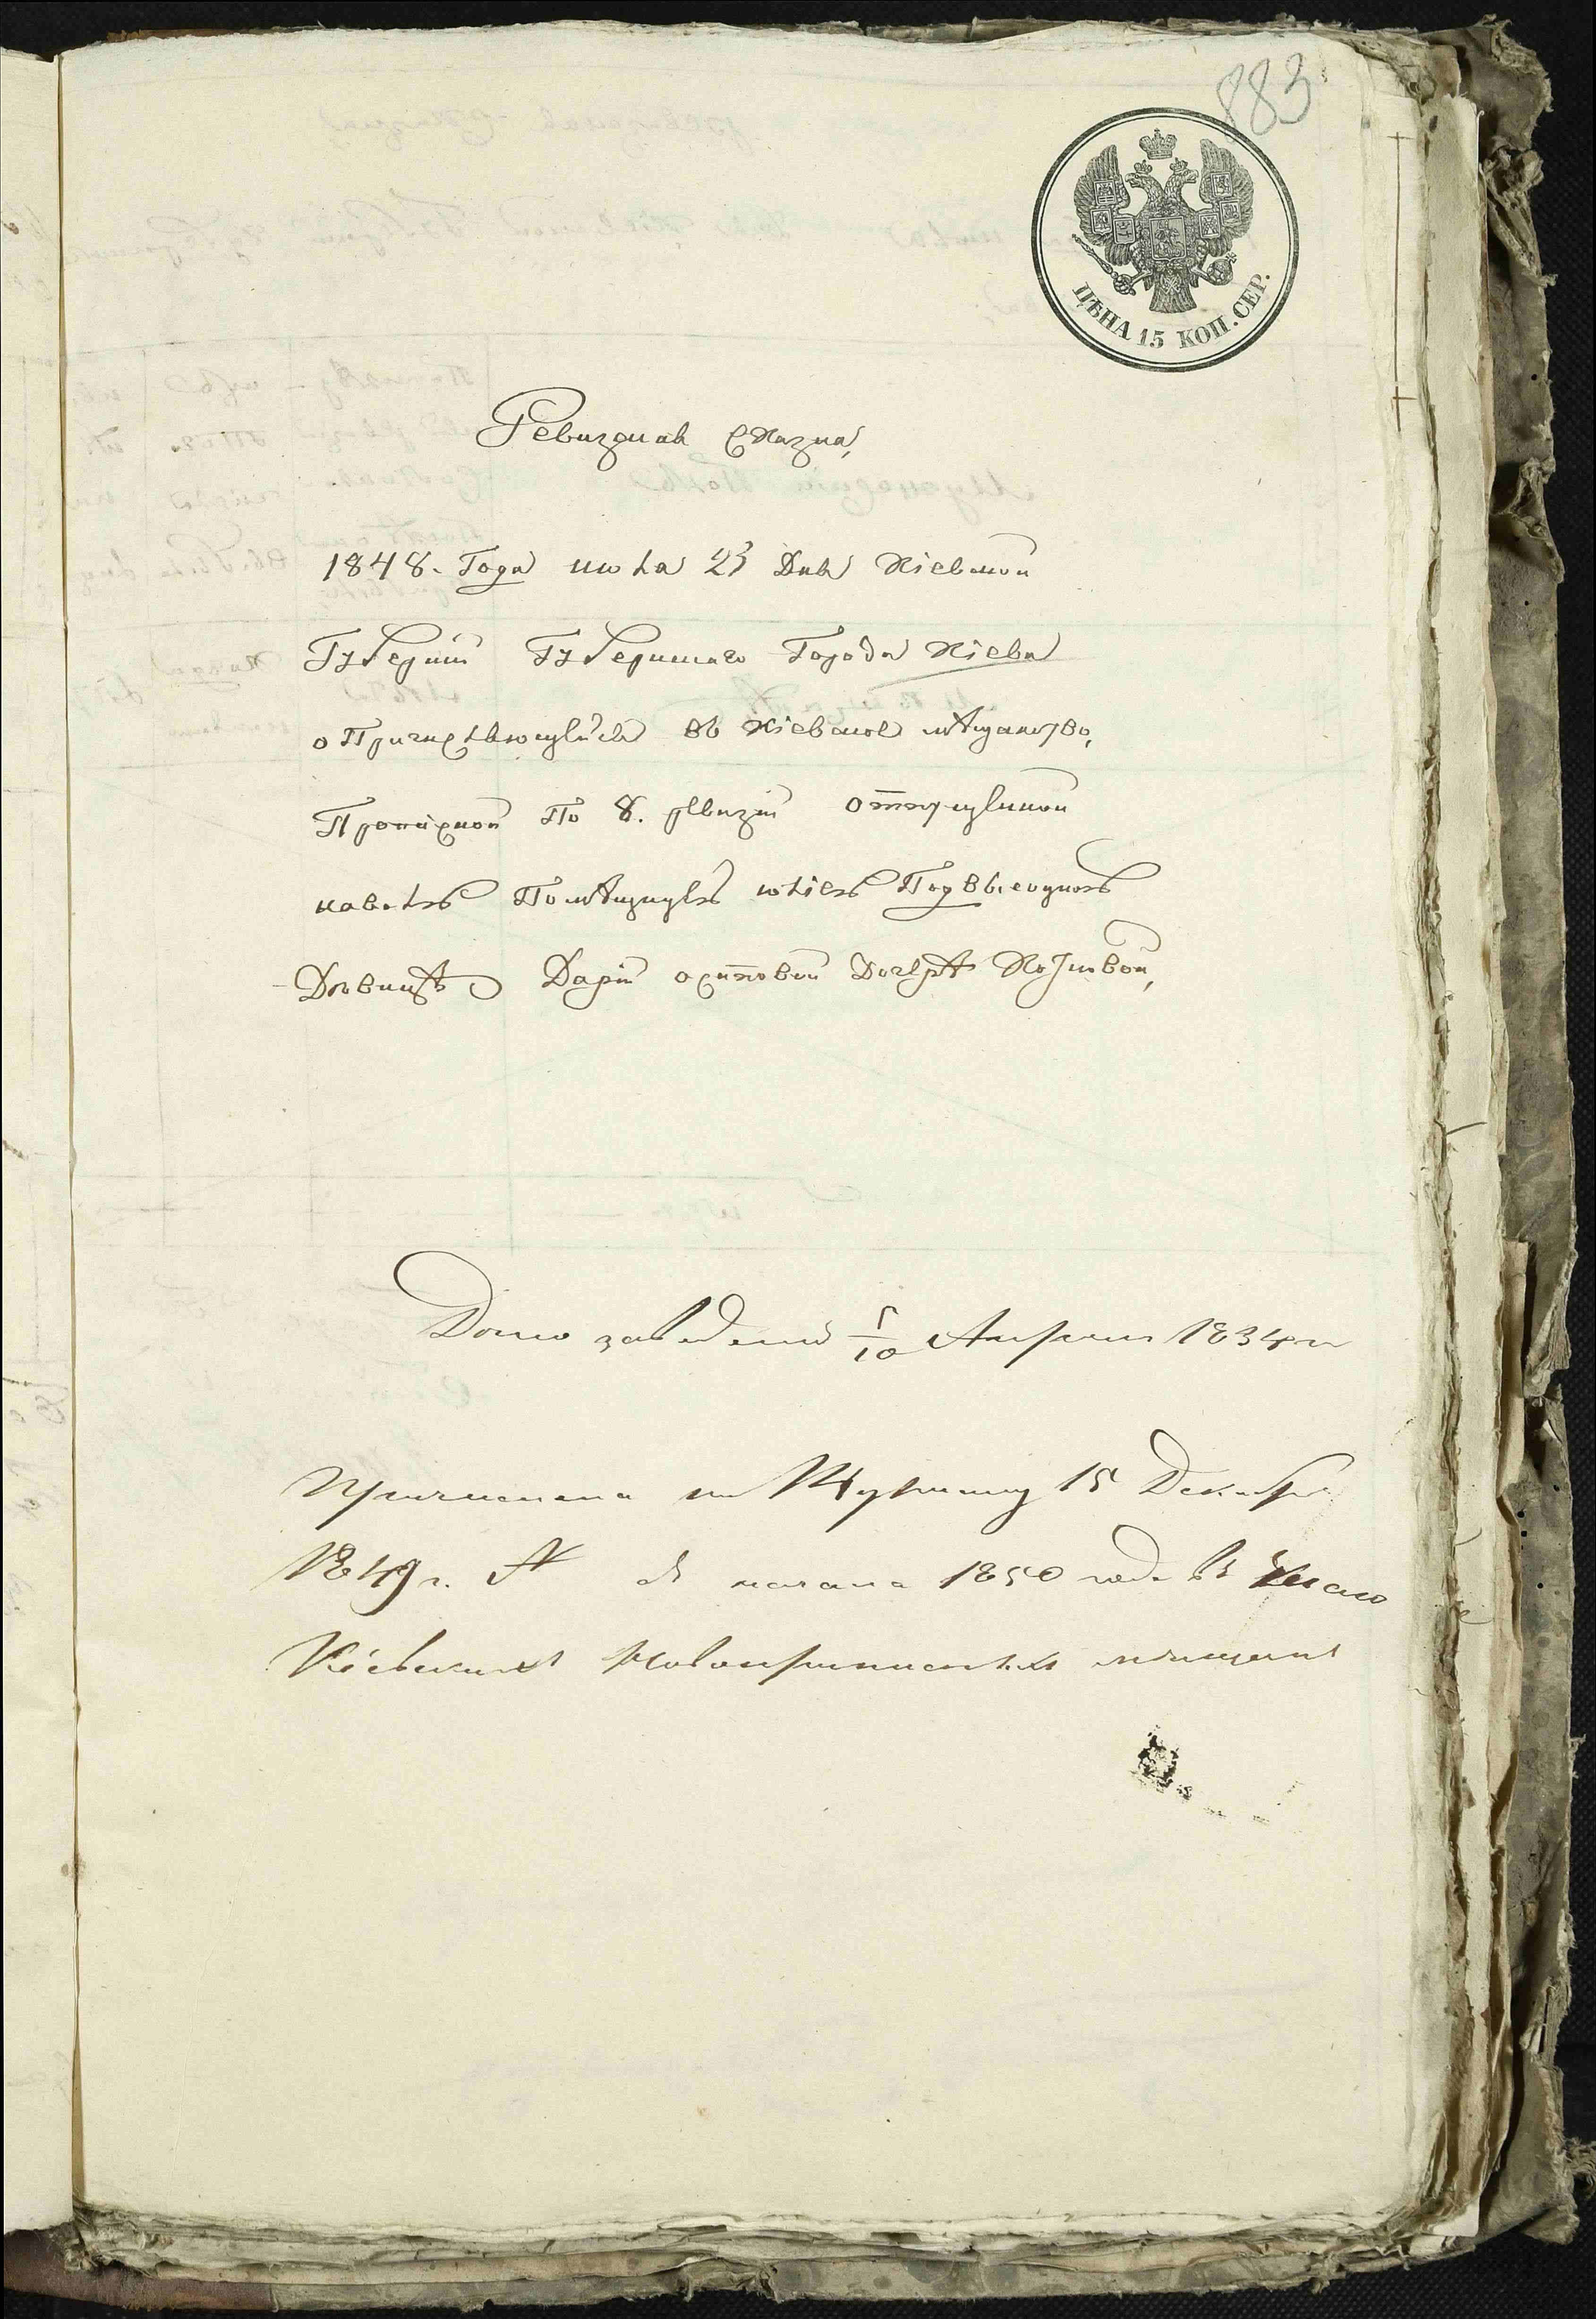 883
ЦѢНА 15 КОП. СЕР.
Ревизская Сказка,
1848. Года июля 23 Дня Кіевской
Губерніи Губернскаго Города Кіева
о Причисляющейся въ Кіевское мѣщанство,
По 8. ревизіи отпущенной
на волю Помѣщицею Подвысоцкою
Дѣвицѣ Даріи Осиповой Дочерѣ
Дѣло заведено 5/10 Апреля 1834 г
Причислена по Журналу 15 Декабря
1849 г. № съ начала 1850 года въ число
Кіевскихъ Новоприписныхъ мѣщанъ